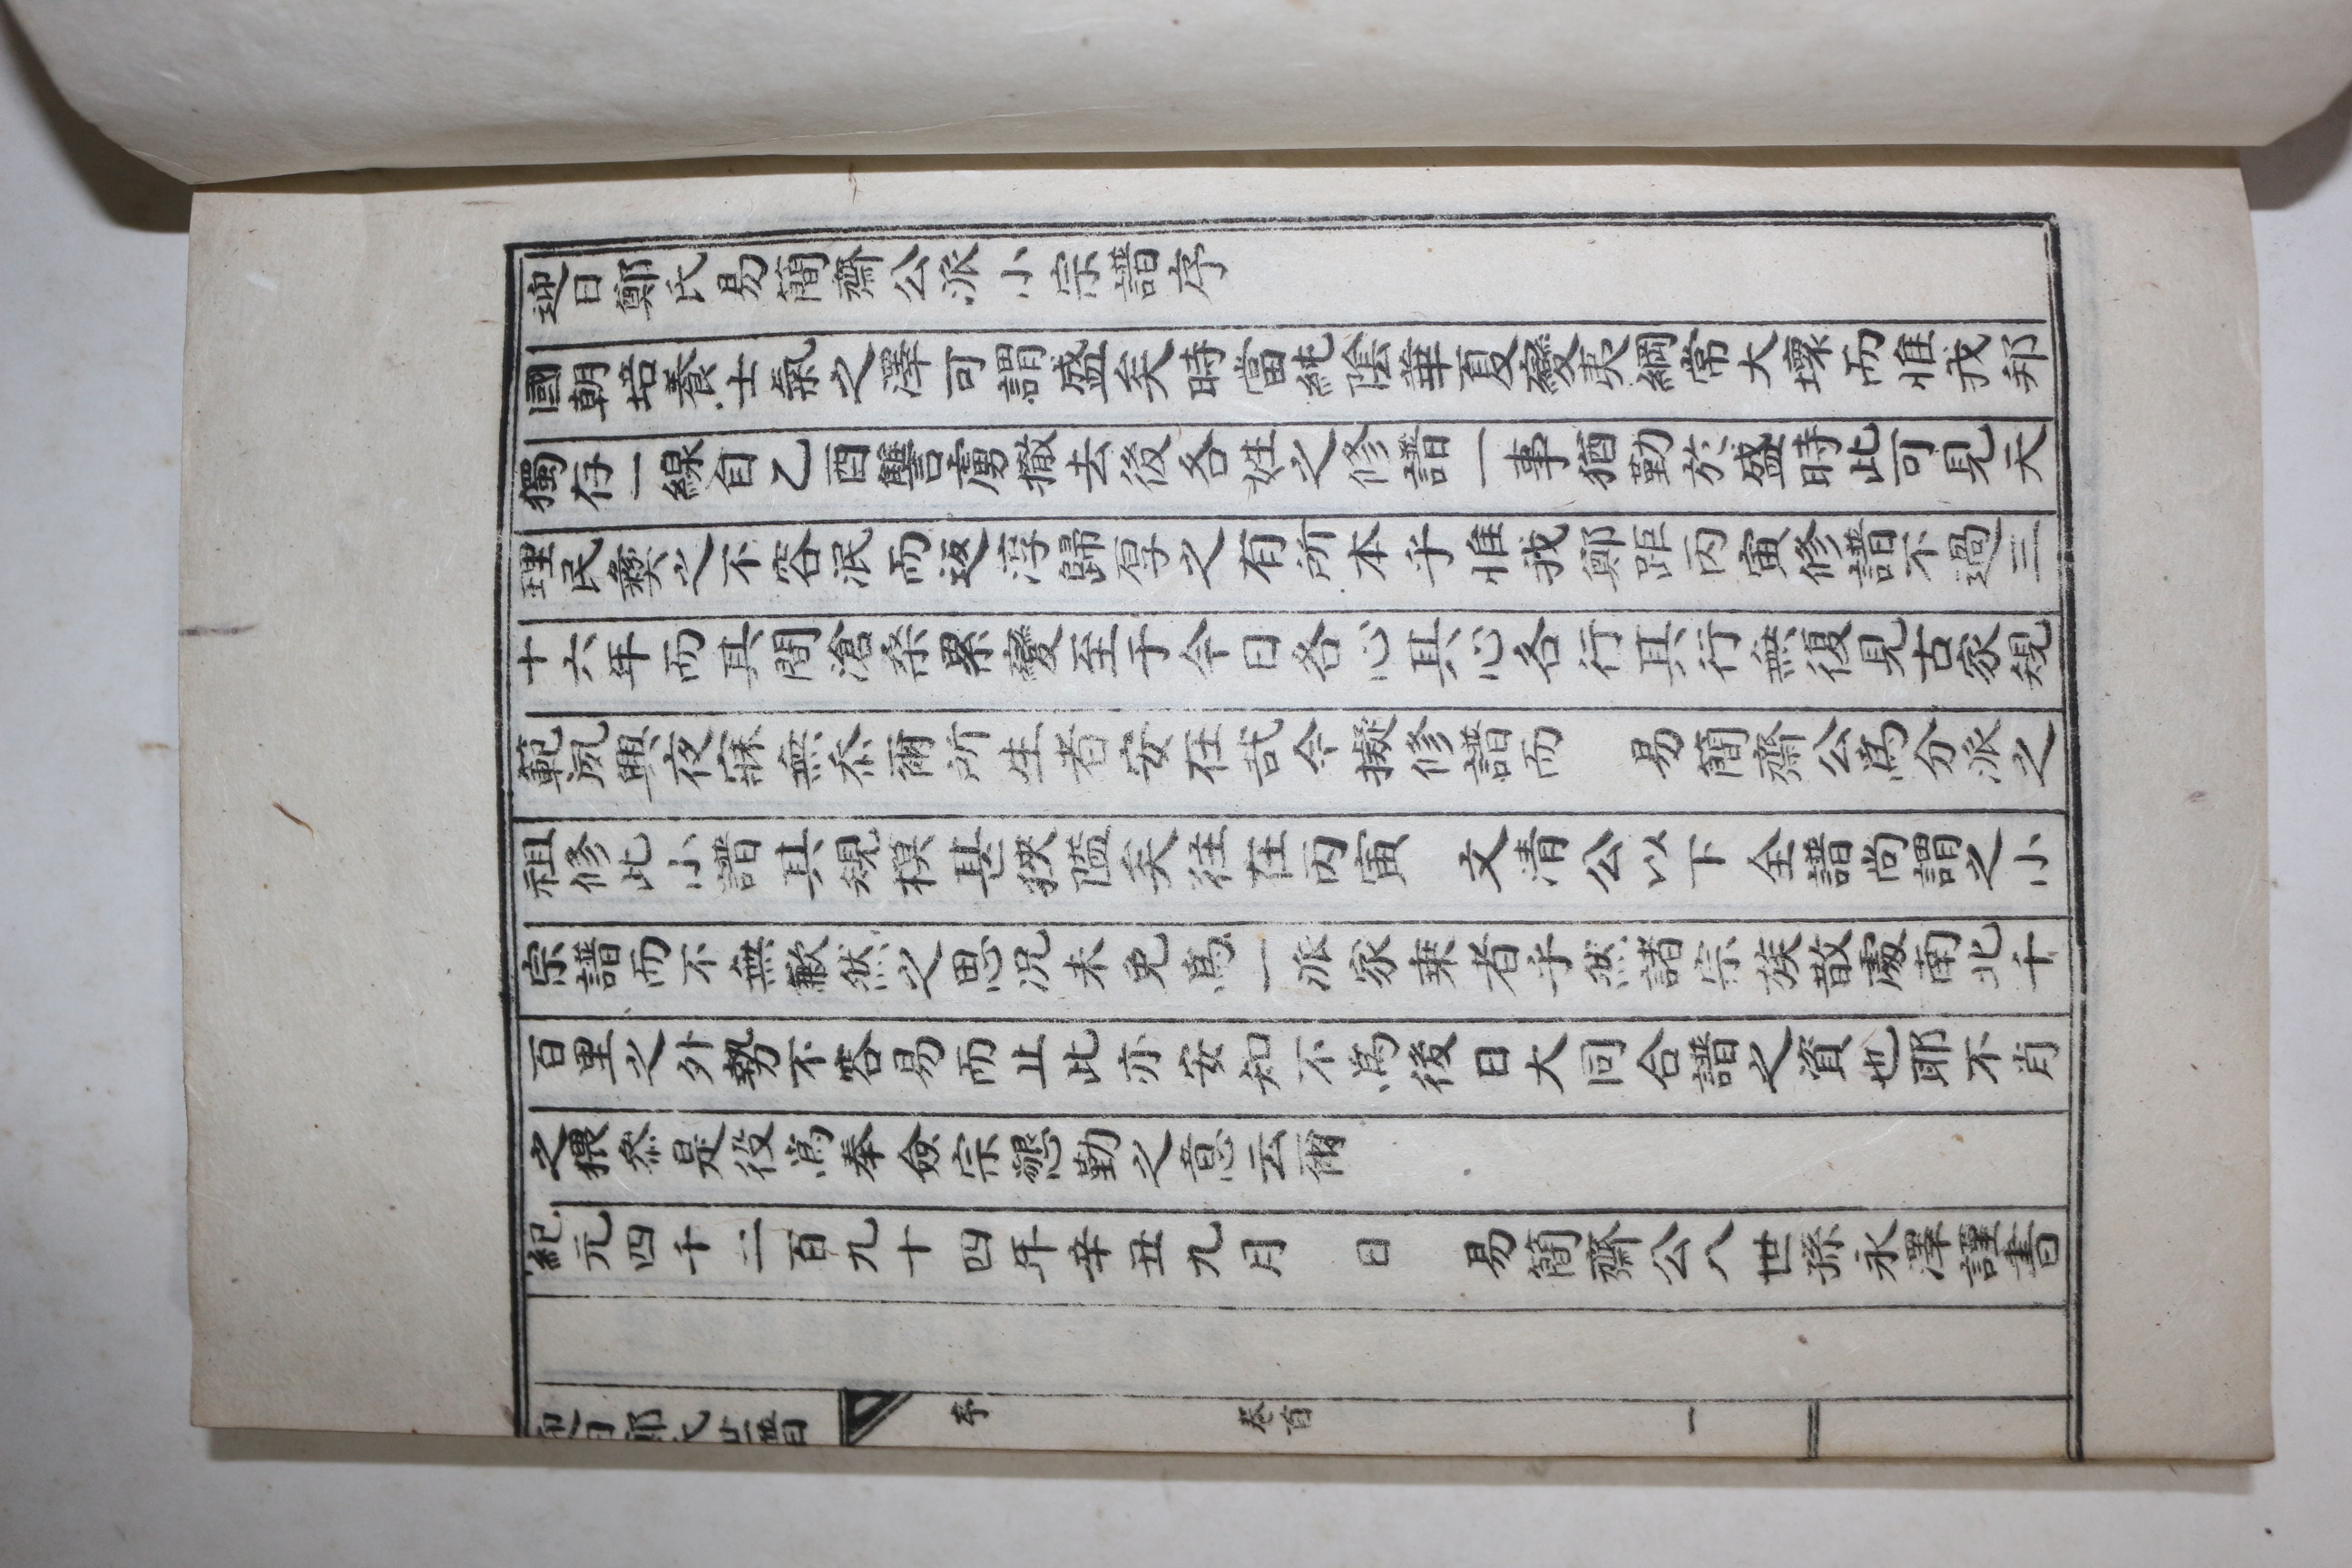 迎日鄭氏易簡齋公派小宗譜序
國朝培養士氣之澤可謂盛矣時當純陰華夏變夷綱常大壞而惟我邦
獨存一線自乙酉讐虜撤去後各姓之修譜一事猶勤於盛時此可見天
理民彛之不容泯而返淳歸厚之有所本乎惟我鄭距丙寅修譜不過三
十六年而其間滄桑累變至于今日各心其心各行其行無復見古家規
範夙興夜寐無忝爾所生者安在哉今擬修譜而 易簡齋公爲分派之
祖修此小譜其規模甚狹隘矣往在丙寅 文清公以下全譜尚謂之小
宗譜而不無歉然之思况未免爲一派家乘者乎然諸宗族散處南北千
百里之外勢不容易而止此亦安知不爲後日大同合譜之資也耶不肖
之猥忝是役爲奉僉宗懇勤之意云爾
紀元四千二百九十四年辛丑九月 日 易簡齋公八世孫永澤謹書
迎日鄭氏世譜 序 卷首 一